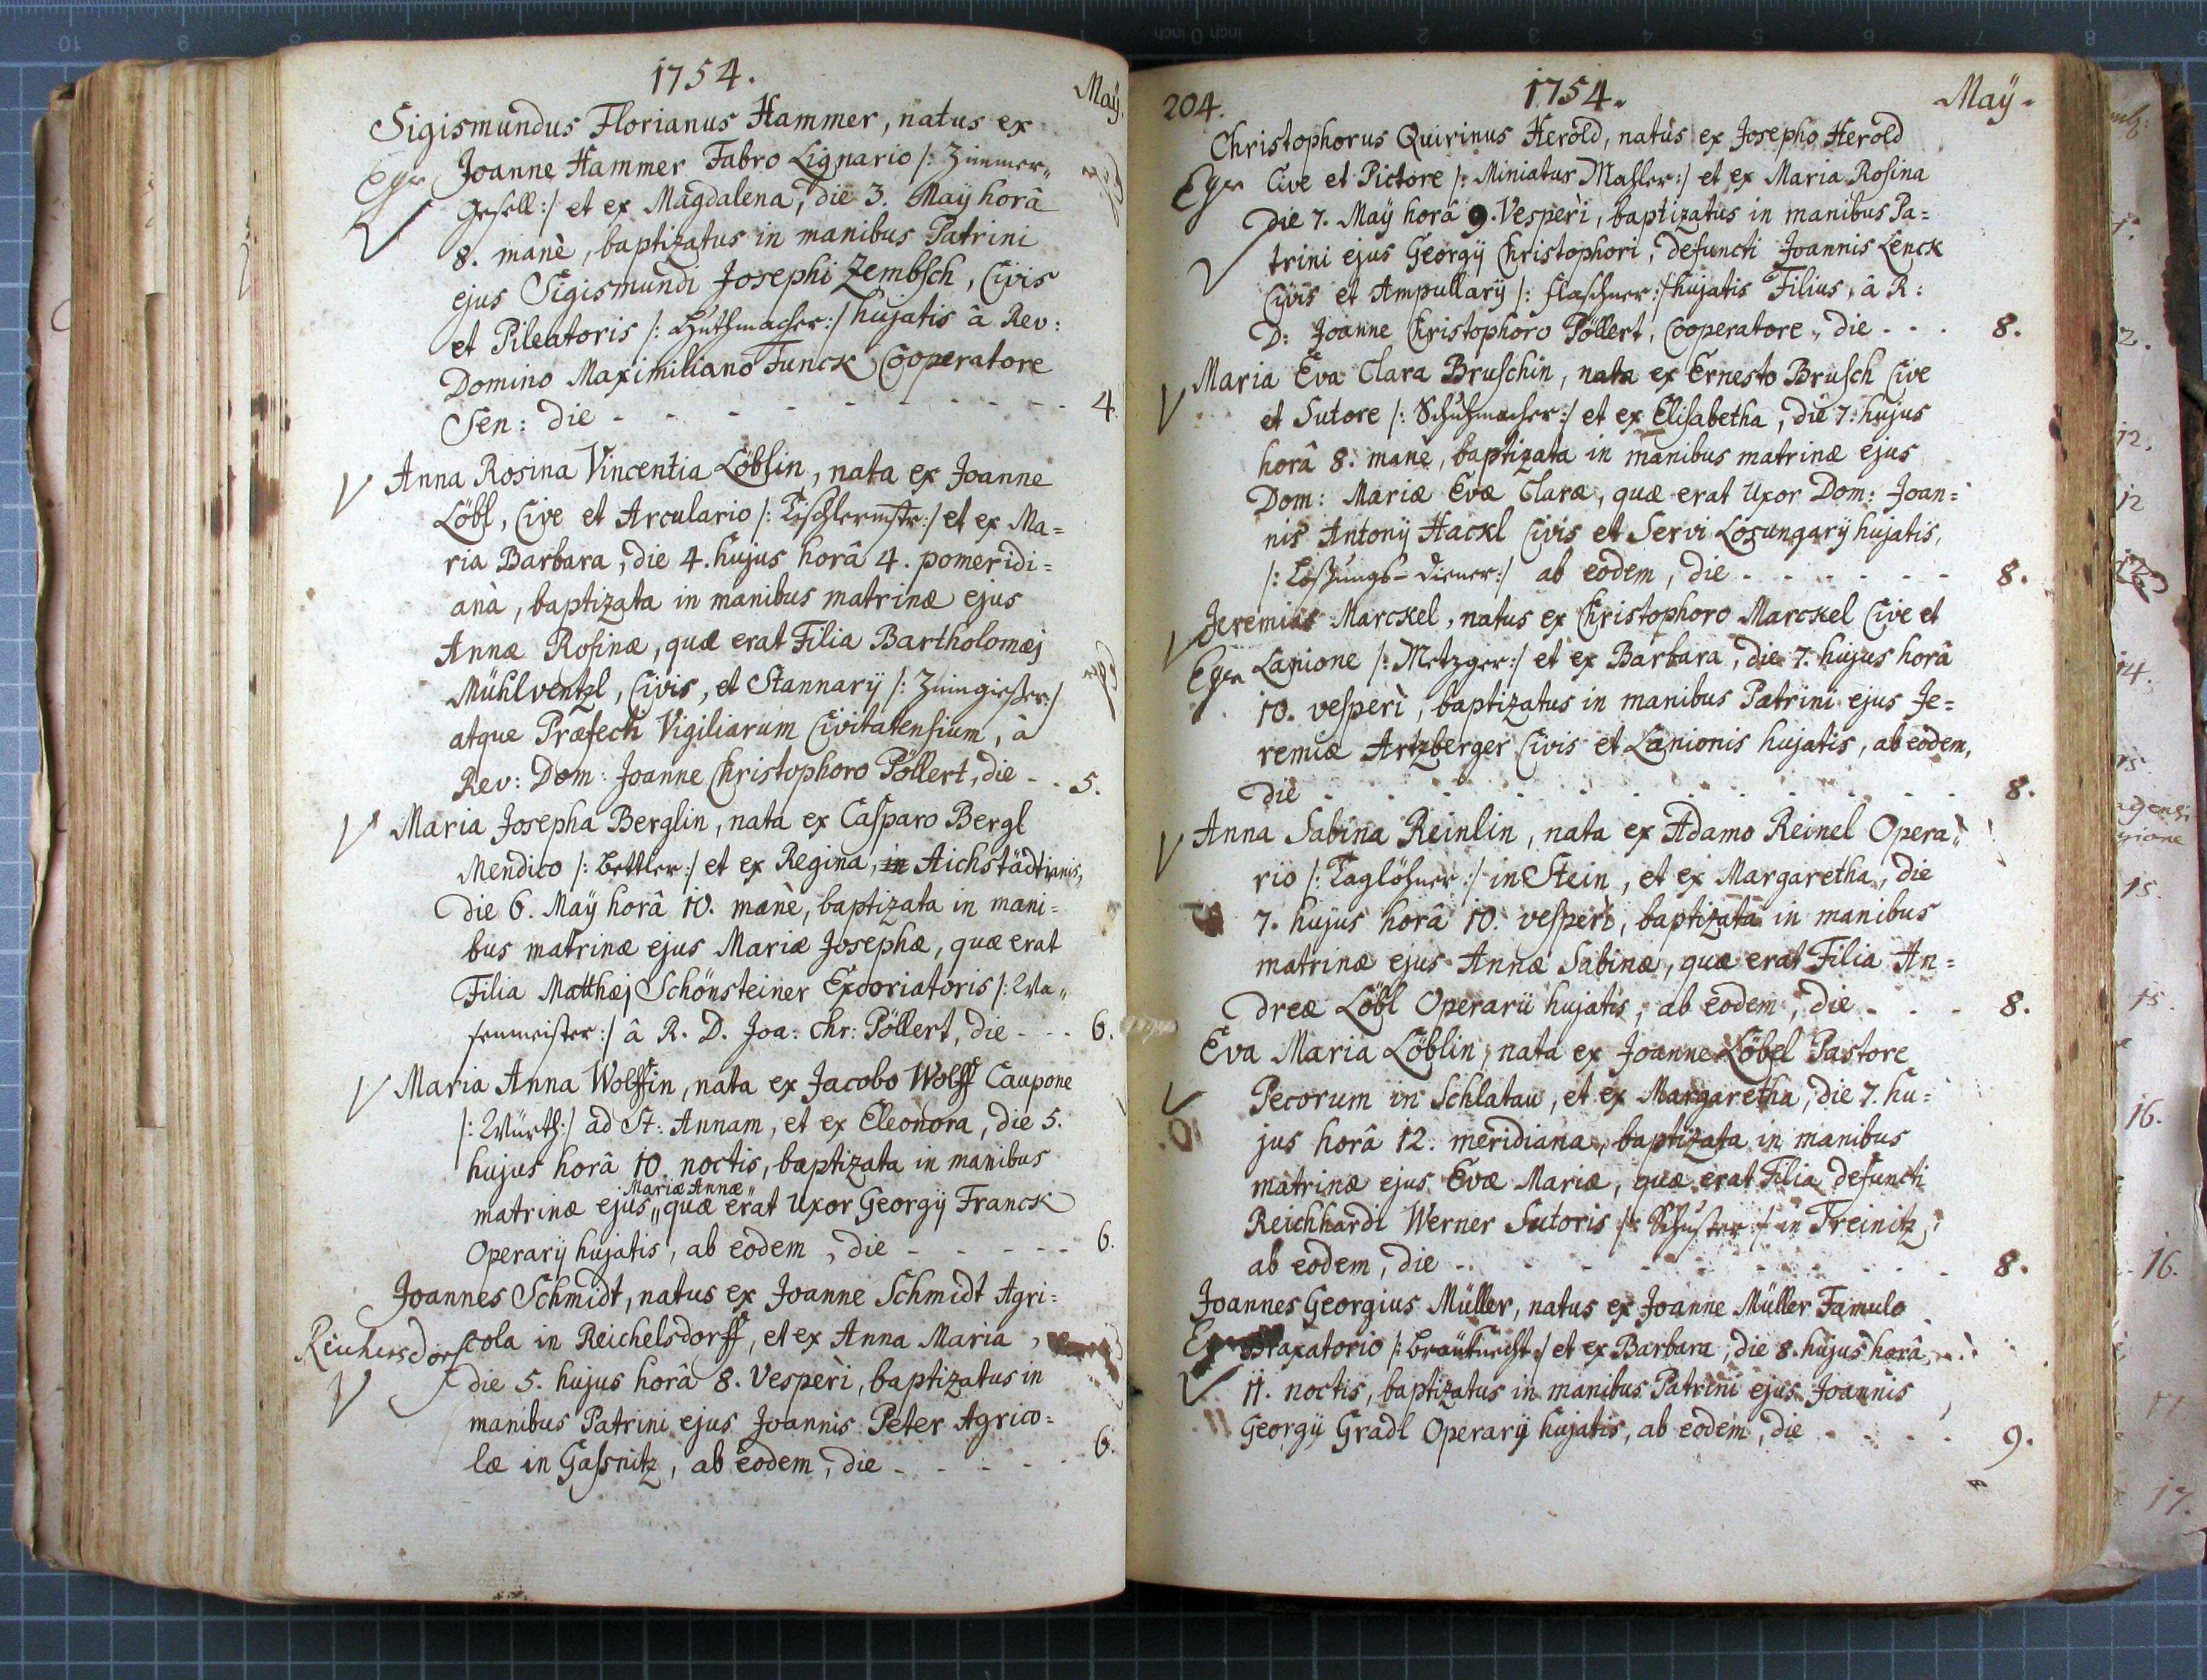 1754.
May.
Sigismundus Florianus Hammer, natus ex
Eger Joanne Hammer Fabro Lignario /: Zimmer„
gesell :/ et ex Magdalena, die 3. Maÿ horâ
8. manè, baptizatus in manibus Patrini
ejus Sigismundi Josephi Zembsch, Civis
et Pileatoris /: Huthmacher :/ hujatis â Rev:
Domino Maximiliano Funck Cooperatore
Sen: die - - - - - - - - 4.
Anna Rosina Vincentia Löblin, nata ex Joanne
Löbl, Cive et Arculario /: Tischlermstr :/ et ex Ma=
ria Barbara, die 4. hujus horâ 4. pomeridi=
anà, baptizata in manibus matrinæ ejus
Annæ Rosinæ, quæ erat Filia Bartholomæj
Mühlventzl, Civis, et Stannarÿ /: Zinngießer :/
atque Præfecti Vigiliarum Civitatensium, à
Rev: Dom: Joanne Christophoro Pöllert, die - - 5.
Maria Josepha Berglin, nata ex Casparo Bergl
Mendico /: Bettler :/ et ex Regina, in Aichstädtianis,
die 6. Maÿ horâ 10. manè, baptizata in mani=
bus matrinæ ejus Mariæ Josephæ, quæ erat
Filia Matthæj Schönsteiner Excoriatoris /: Wa„
senmeister :/ â R. D. Joa: Chr: Pöllert, die - - - 6.
Maria Anna Wolffin, nata ex Jacobo Wolff Caupone
/: Würth :/ ad St: Annam, et ex Eleonora, die 5.
hujus horâ 10. noctis, baptizata in manibus
Mariæ Annæ
matrinæ ejus „ quæ erat Uxor Georgÿ Franck
Operarÿ hujatis, ab eodem, die - - - - - 6.
Joannes Schmidt, natus ex Joanne Schmidt Agri=
Reichersdorf cola in Reichelsdorff, et ex Anna Maria,
die 5. hujus horâ 8. Vesperì, baptizatus in
manibus Patrini ejus Joannis Peter Agrico=
læ in Gassnitz, ab eodem, die - - - - - 6.
204. 1754. Maÿ.
Christophorus Quirinus Herold, natus ex Josepho Herold
Eger Cive et Pictore /: Miniatur Mahler :/ et ex Maria Rosina
die 7. Maÿ horâ 9. Vesperì, baptizatus in manibus Pa=
trini ejus Georgÿ Christophori, defuncti Joannis Lenck
Civis et Ampullarÿ /: flaschner :/ hujatis Filius, â R:
D: Joanne Christophoro Pöllert, Cooperatore, die - - - 8.
Maria Eva Clara Bruschin, nata ex Ernesto Brusch Cive
et Sutore /: Schuhmacher :/ et ex Elisabetha, die 7. hujus
horâ 8. manè, baptizata in manibus matrinæ ejus
Dom: Mariæ Evæ Claræ, quæ erat Uxor Dom: Joan=
nis Antonÿ Hackl Civis et Servi Losungarÿ hujatis,
/: Loßungs-Diener :/ ab eodem, die - - - - - - 8.
Jeremias Marckel, natus ex Christophoro Marckel Cive et
Eger Lanione /: Metzger :/ et ex Barbara, die 7. hujus horâ
10. vesperì, baptizatus in manibus Patrini ejus Je=
remiæ Artzberger Civis et Lanionis hujatis, ab eodem,
die - - - - - - - - - - 8.
Anna Sabina Reinlin, nata ex Adamo Reinel Opera„
rio /: Taglöhner :/ in Stein, et ex Margaretha, die
7. hujus horâ 10. vesperì, baptizata in manibus
matrinæ ejus Annæ Sabinæ, quæ erat Filia An=
dreæ Löbl Operarii hujatis, ab eodem, die - - - 8.
Eva Maria Löblin, nata ex Joanne Löbel Pastore
Pecorum in Schlatau, et ex Margaretha, die 7. hu=
jus horâ 12. meridiana, baptizata in manibus
matrinæ ejus Evæ Mariæ, quæ erat Filia defuncti
Reichhardi Werner Sutoris /: Schuster :/ in Treinitz,
ab eodem, die - - - - - - - - 8.
Joannes Georgius Müller, natus ex Joanne Müller Famulo
Braxatorio /: Bräuknecht :/ et ex Barbara, die 8. hujus horâ
11. noctis, baptizatus in manibus Patrini ejus Joannis
Georgÿ Gradl Operarÿ hujatis, ab eodem, die - - - - 9.